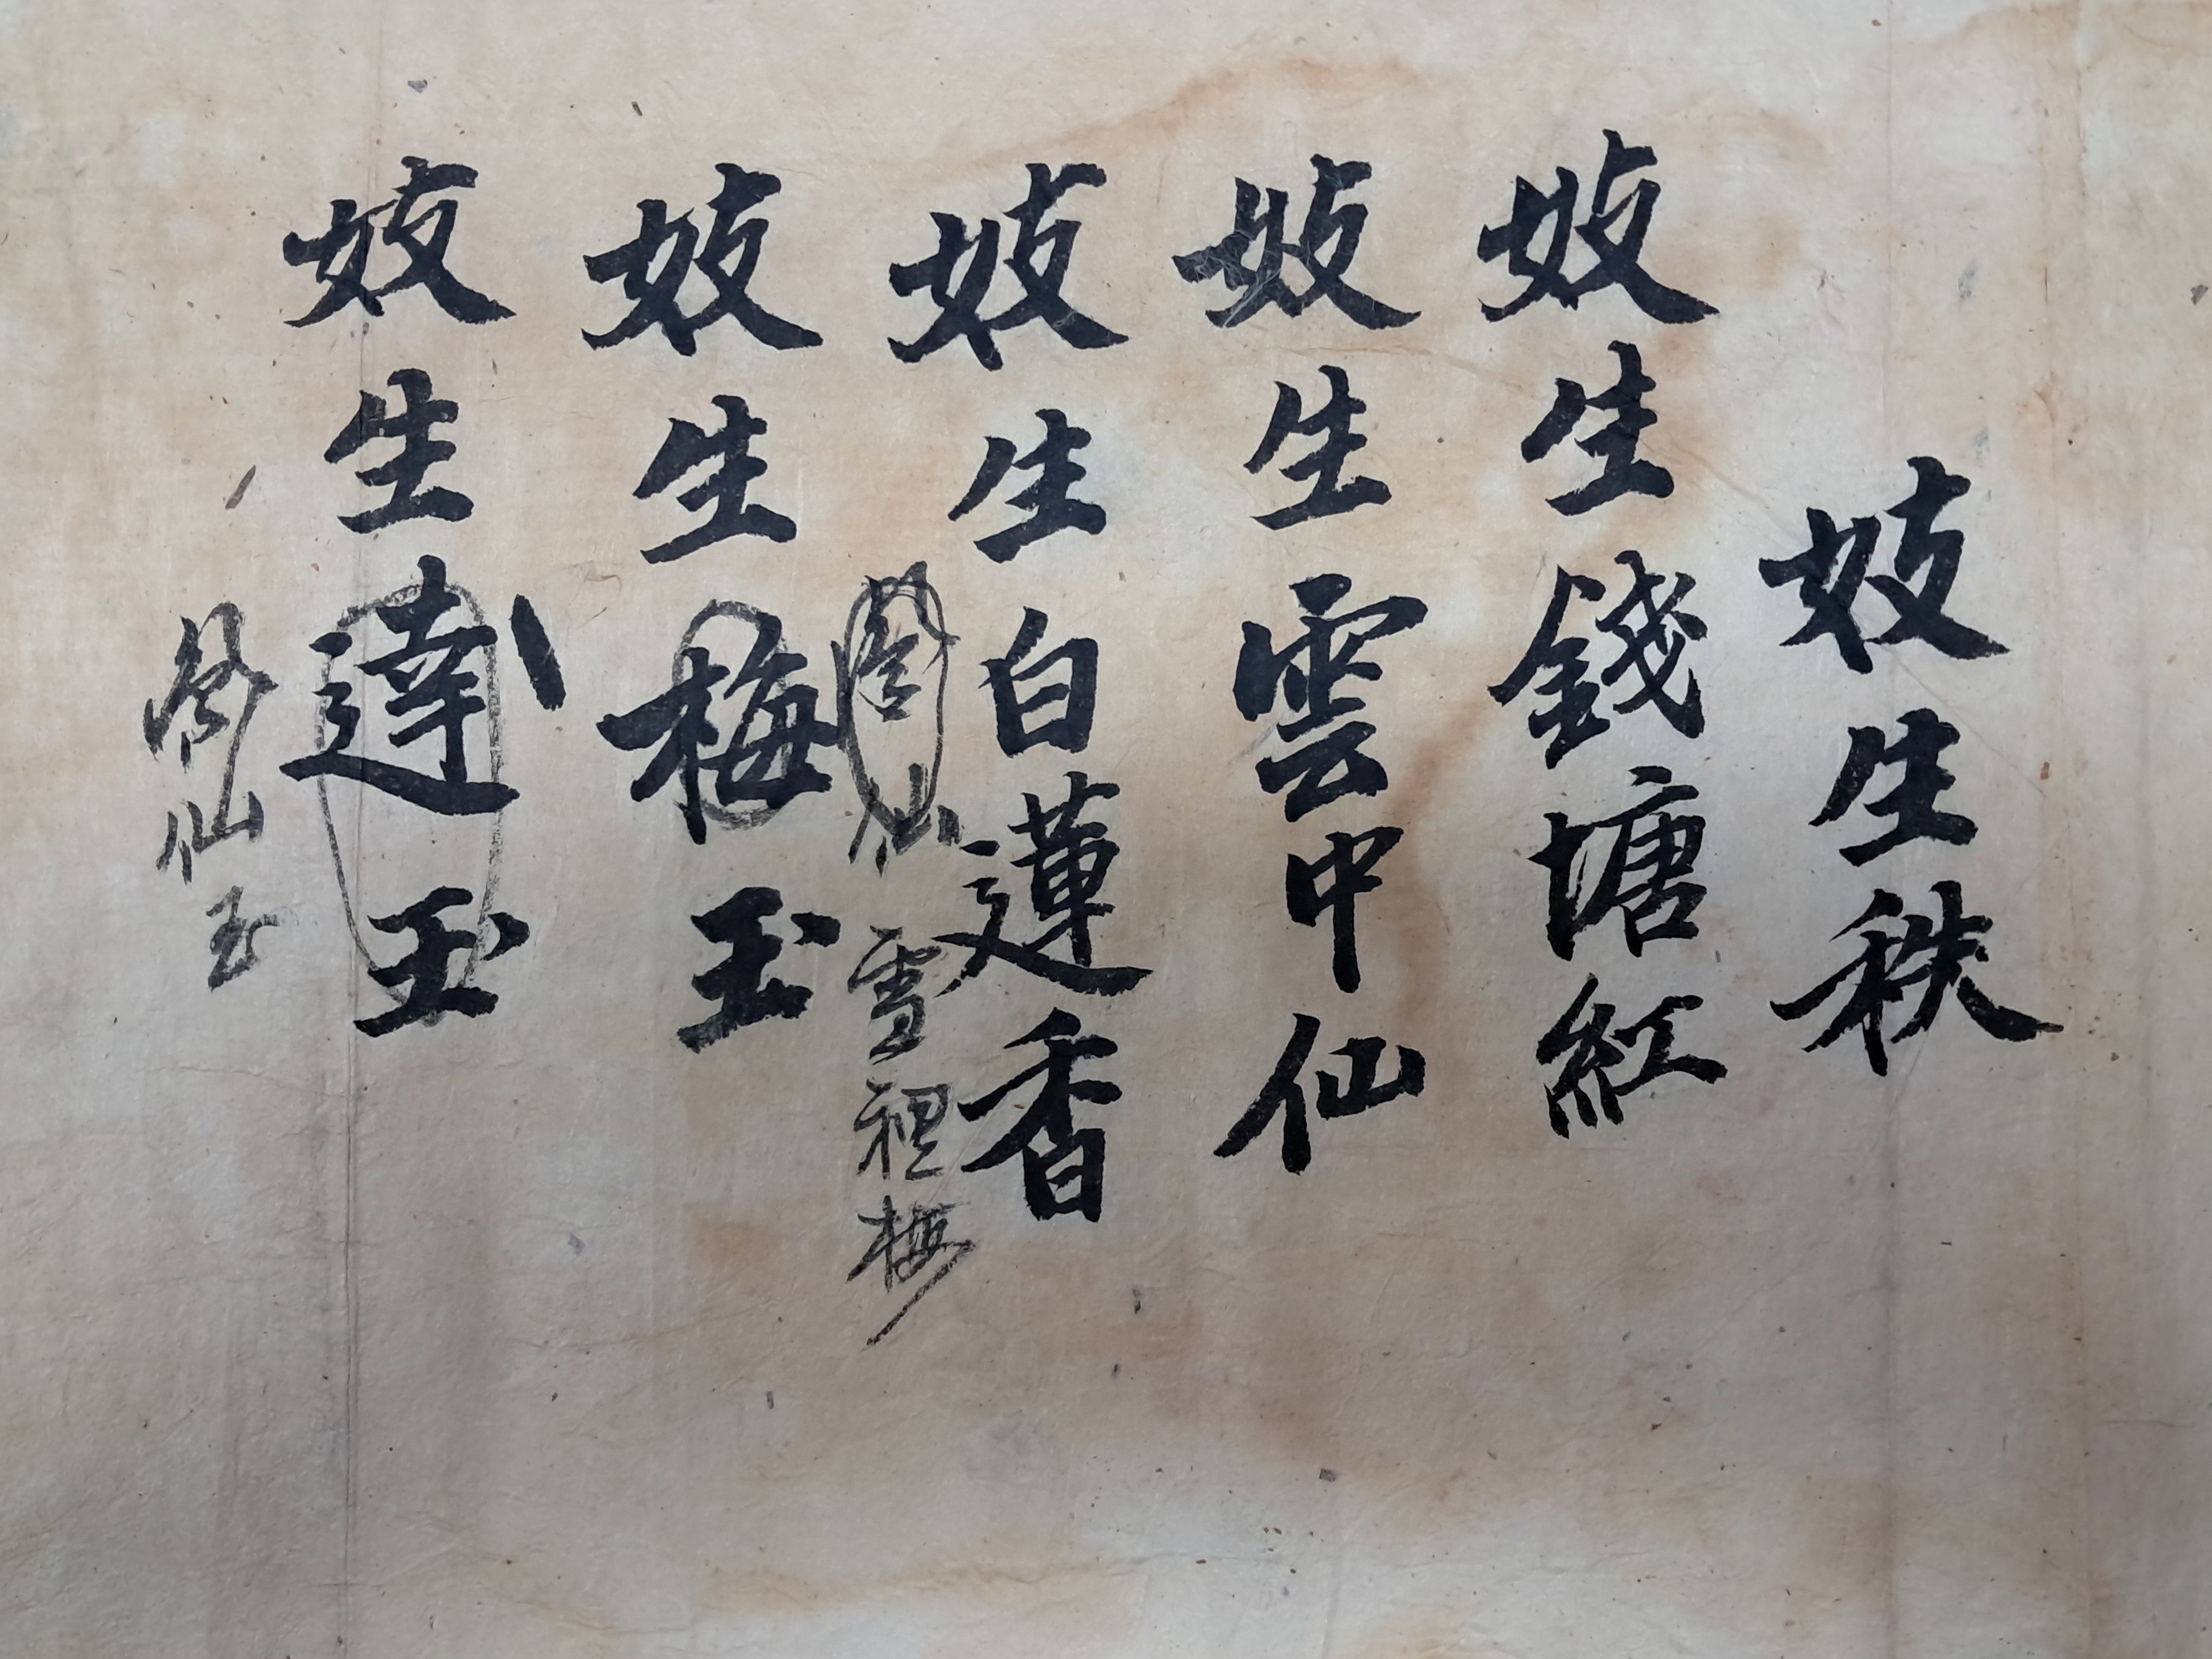 妓生秩
妓生錢塘紅
妓生雲中仙
妓生白蓮香
仙
雪裡梅
妓生梅玉
妓生達玉
鳳仙玉